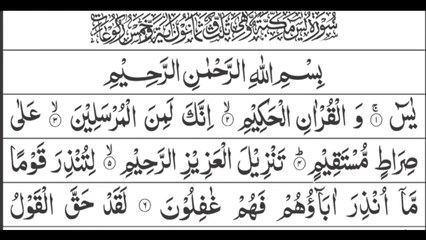 سورة يس مكية وهي ثلث وثمانون اية وخمس ركوعات
بِسْمِ اللهِ الرَّحْمٰنِ الرَّحِيْمِ
يٰسٓ ۚ﴿۱﴾ وَ الْقُرْاٰنِ الْحَكِيْمِ ۙ﴿۲﴾ اِنَّكَ لَمِنَ الْمُرْسَلِيْنَ ۙ﴿۳﴾ عَلٰى
صِرَاطٍ مُّسْتَقِيْمٍ ؕ﴿۴﴾ تَنْزِيْلَ الْعَزِيْزِ الرَّحِيْمِ ۙ﴿۵﴾ لِتُنْذِرَ قَوْمًا
مَّاۤ اُنْذِرَ اٰبَآؤُهُمْ فَهُمْ غٰفِلُوْنَ ﴿۶﴾ لَقَدْ حَقَّ الْقَوْلُ